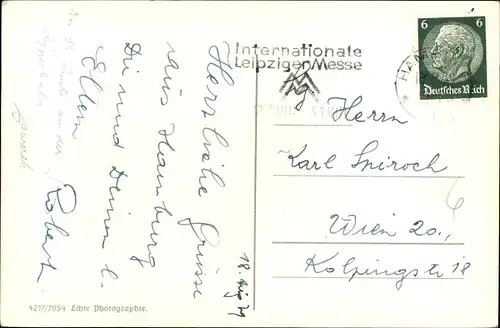 Herzliche Grüsse
aus Hamburg
Dir und Deinen l.
Eltern
Robert.
18. Aug
4217/7054 Echte Photographie.
Internationale
Leipziger Messe
6 6
Deutsches Reich
Herrn
Karl Spiroch
Wien 20.,
Kolpingstr 18
6